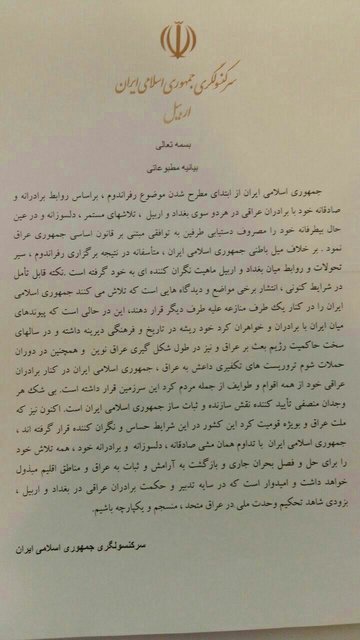 سرکنسولگری جمهوری اسلامی ایران
اربیل
بسمه تعالی
بیانیه مطبوعاتی
جمهوری اسلامی ایران از ابتدای مطرح شدن موضوع رفراندوم ، براساس روابط برادرانه و
صادقانه خود با برادران عراقی در هردو سوی بغداد و اربیل ، تلاشهای مستمر ، دلسوزانه و در عین
حال بیطرفانه خود را مصروف دستیابی طرفین به توافقی مبتنی بر قانون اساسی جمهوری عراق
نمود . بر خلاف میل باطنی جمهوری اسلامی ایران ، متأسفانه در نتیجه برگزاری رفراندوم ، سیر
تحولات و روابط میان بغداد و اربیل ماهیت نگران کننده ای به خود گرفته است .نکته قابل تأمل
در شرایط کنونی ، انتشار برخی مواضع و دیدگاه هایی است که تلاش می کنند جمهوری اسلامی
ایران را در کنار یک طرف منازعه علیه طرف دیگر قرار دهند، این در حالی است که پیوندهای
میان ایران با برادران و خواهران کرد خود ریشه در تاریخ و فرهنگی دیرینه داشته و در سالهای
سخت حاکمیت رژیم بعث بر عراق و نیز در طول شکل گیری عراق نوین و همچنین در دوران
حملات شوم تروریست های تکفیری داعش به عراق ، جمهوری اسلامی ایران در کنار برادران
عراقی خود از همه اقوام و طوایف از جمله مردم کرد این سرزمین قرار داشته است. بی شک هر
وجدان منصفی تأیید کننده نقش سازنده و ثبات ساز جمهوری اسلامی ایران است. اکنون نیز که
ملت عراق و بویژه قومیت کرد این کشور در این شرایط حساس و نگران کننده قرار گرفته اند ،
جمهوری اسلامی ایران با تداوم همان مشی صادقانه ، دلسوزانه و برادرانه خود ، همه تلاش خود
را برای حل و فصل بحران جاری و بازگشت به آرامش و ثبات به عراق و مناطق اقلیم مبذول
خواهد داشت و امیدوار است که در سایه تدبیر و حکمت برادران عراقی در بغداد و اربیل ،
بزودی شاهد تحکیم وحدت ملی در عراق متحد ، منسجم و یکپارچه باشیم.
سرکنسولگری جمهوری اسلامی ایران